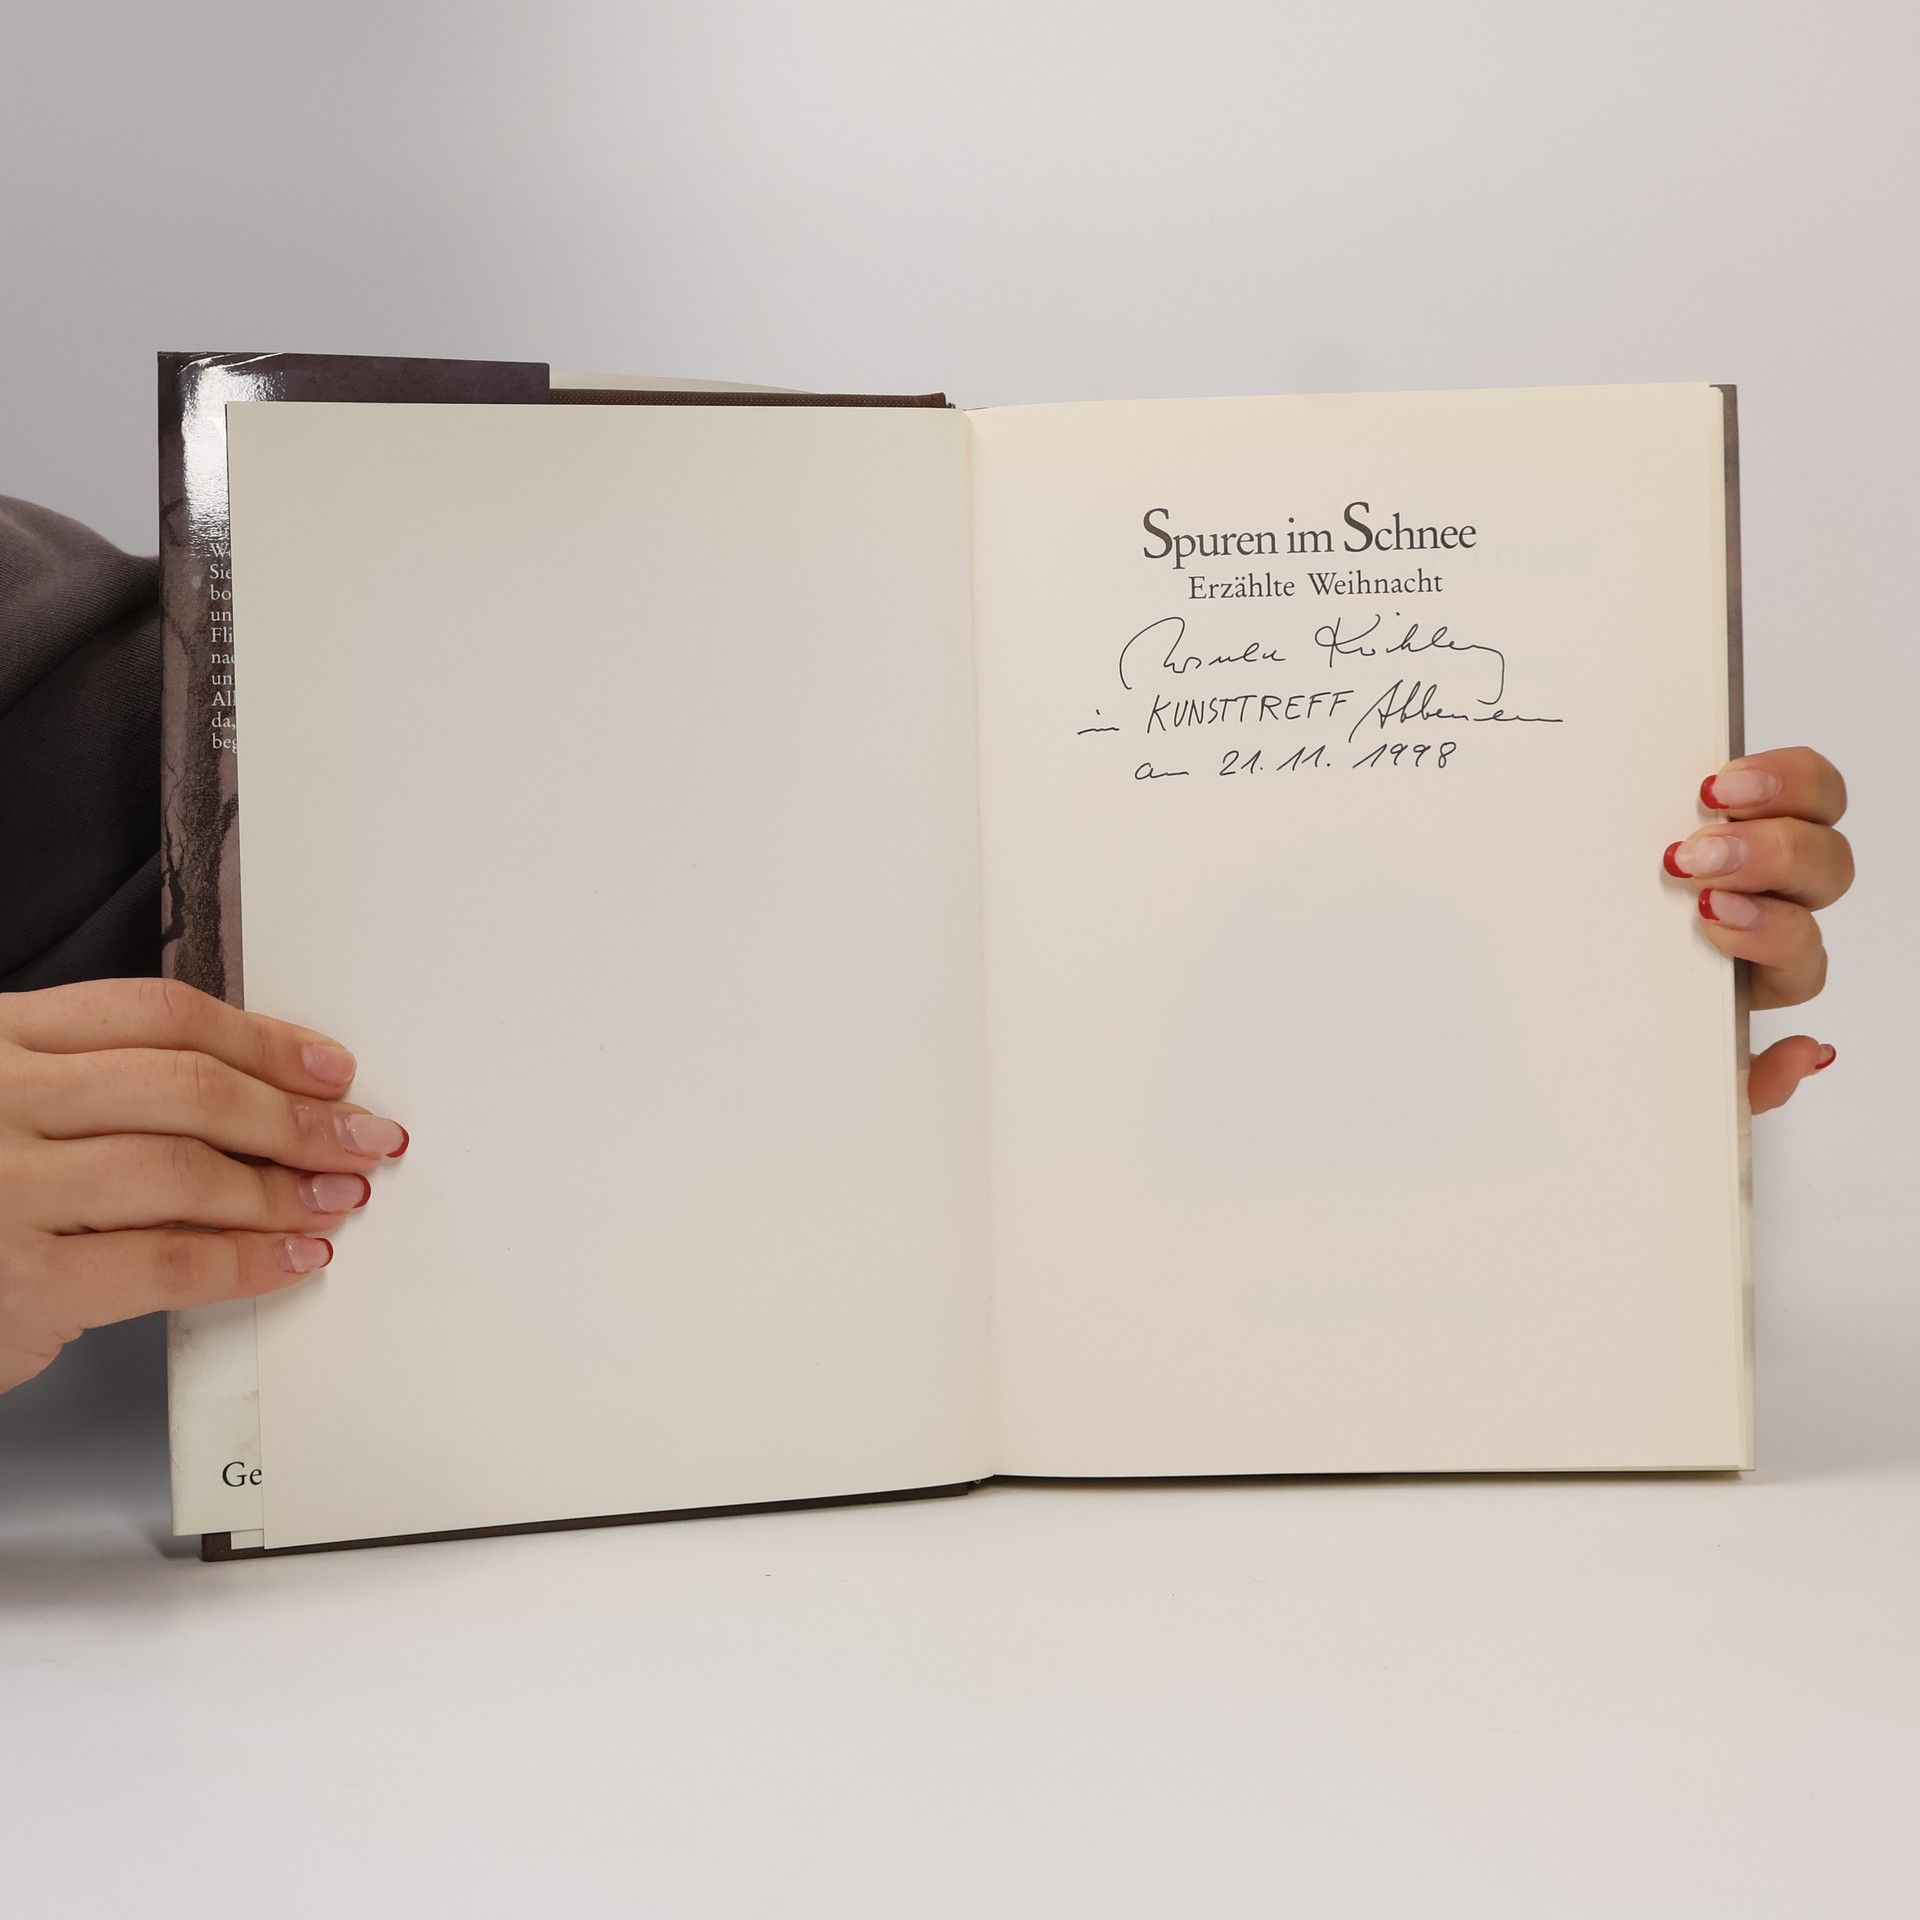 Spuren im Schnee
Erzählte Weihnacht
Ursula Köhler
im KUNSTTREFF Abbensen
am 21.11.1998
We
Sie
bo
un
Fli
nac
un
All
da,
beg
Ge